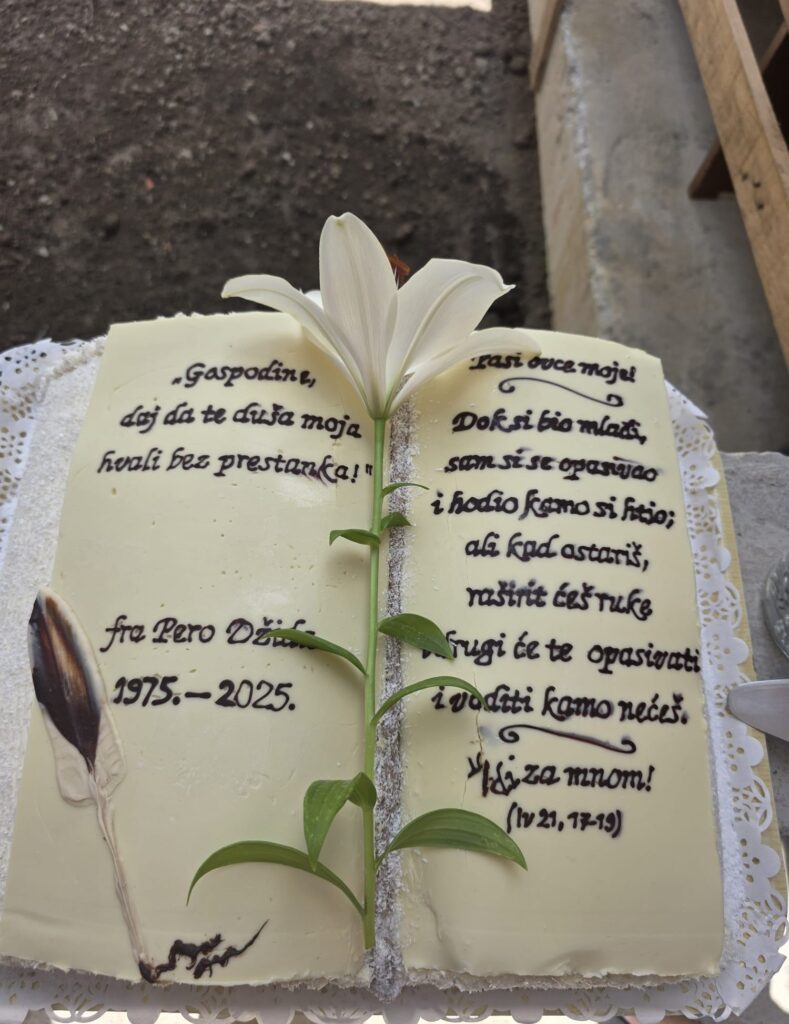 „Gospodine,
daj da te duša moja
hvali bez prestanka!"
fra Pero
1975. – 2025.
Pasi ovce moje!
Dok si bio mlađi,
sam si se opasivao
i hodio kamo si htio;
ali kad ostariš,
raširit ćeš ruke
drugi će te opasivati
i voditi kamo nećeš.
Idi za mnom!
(Iv 21, 17-19)